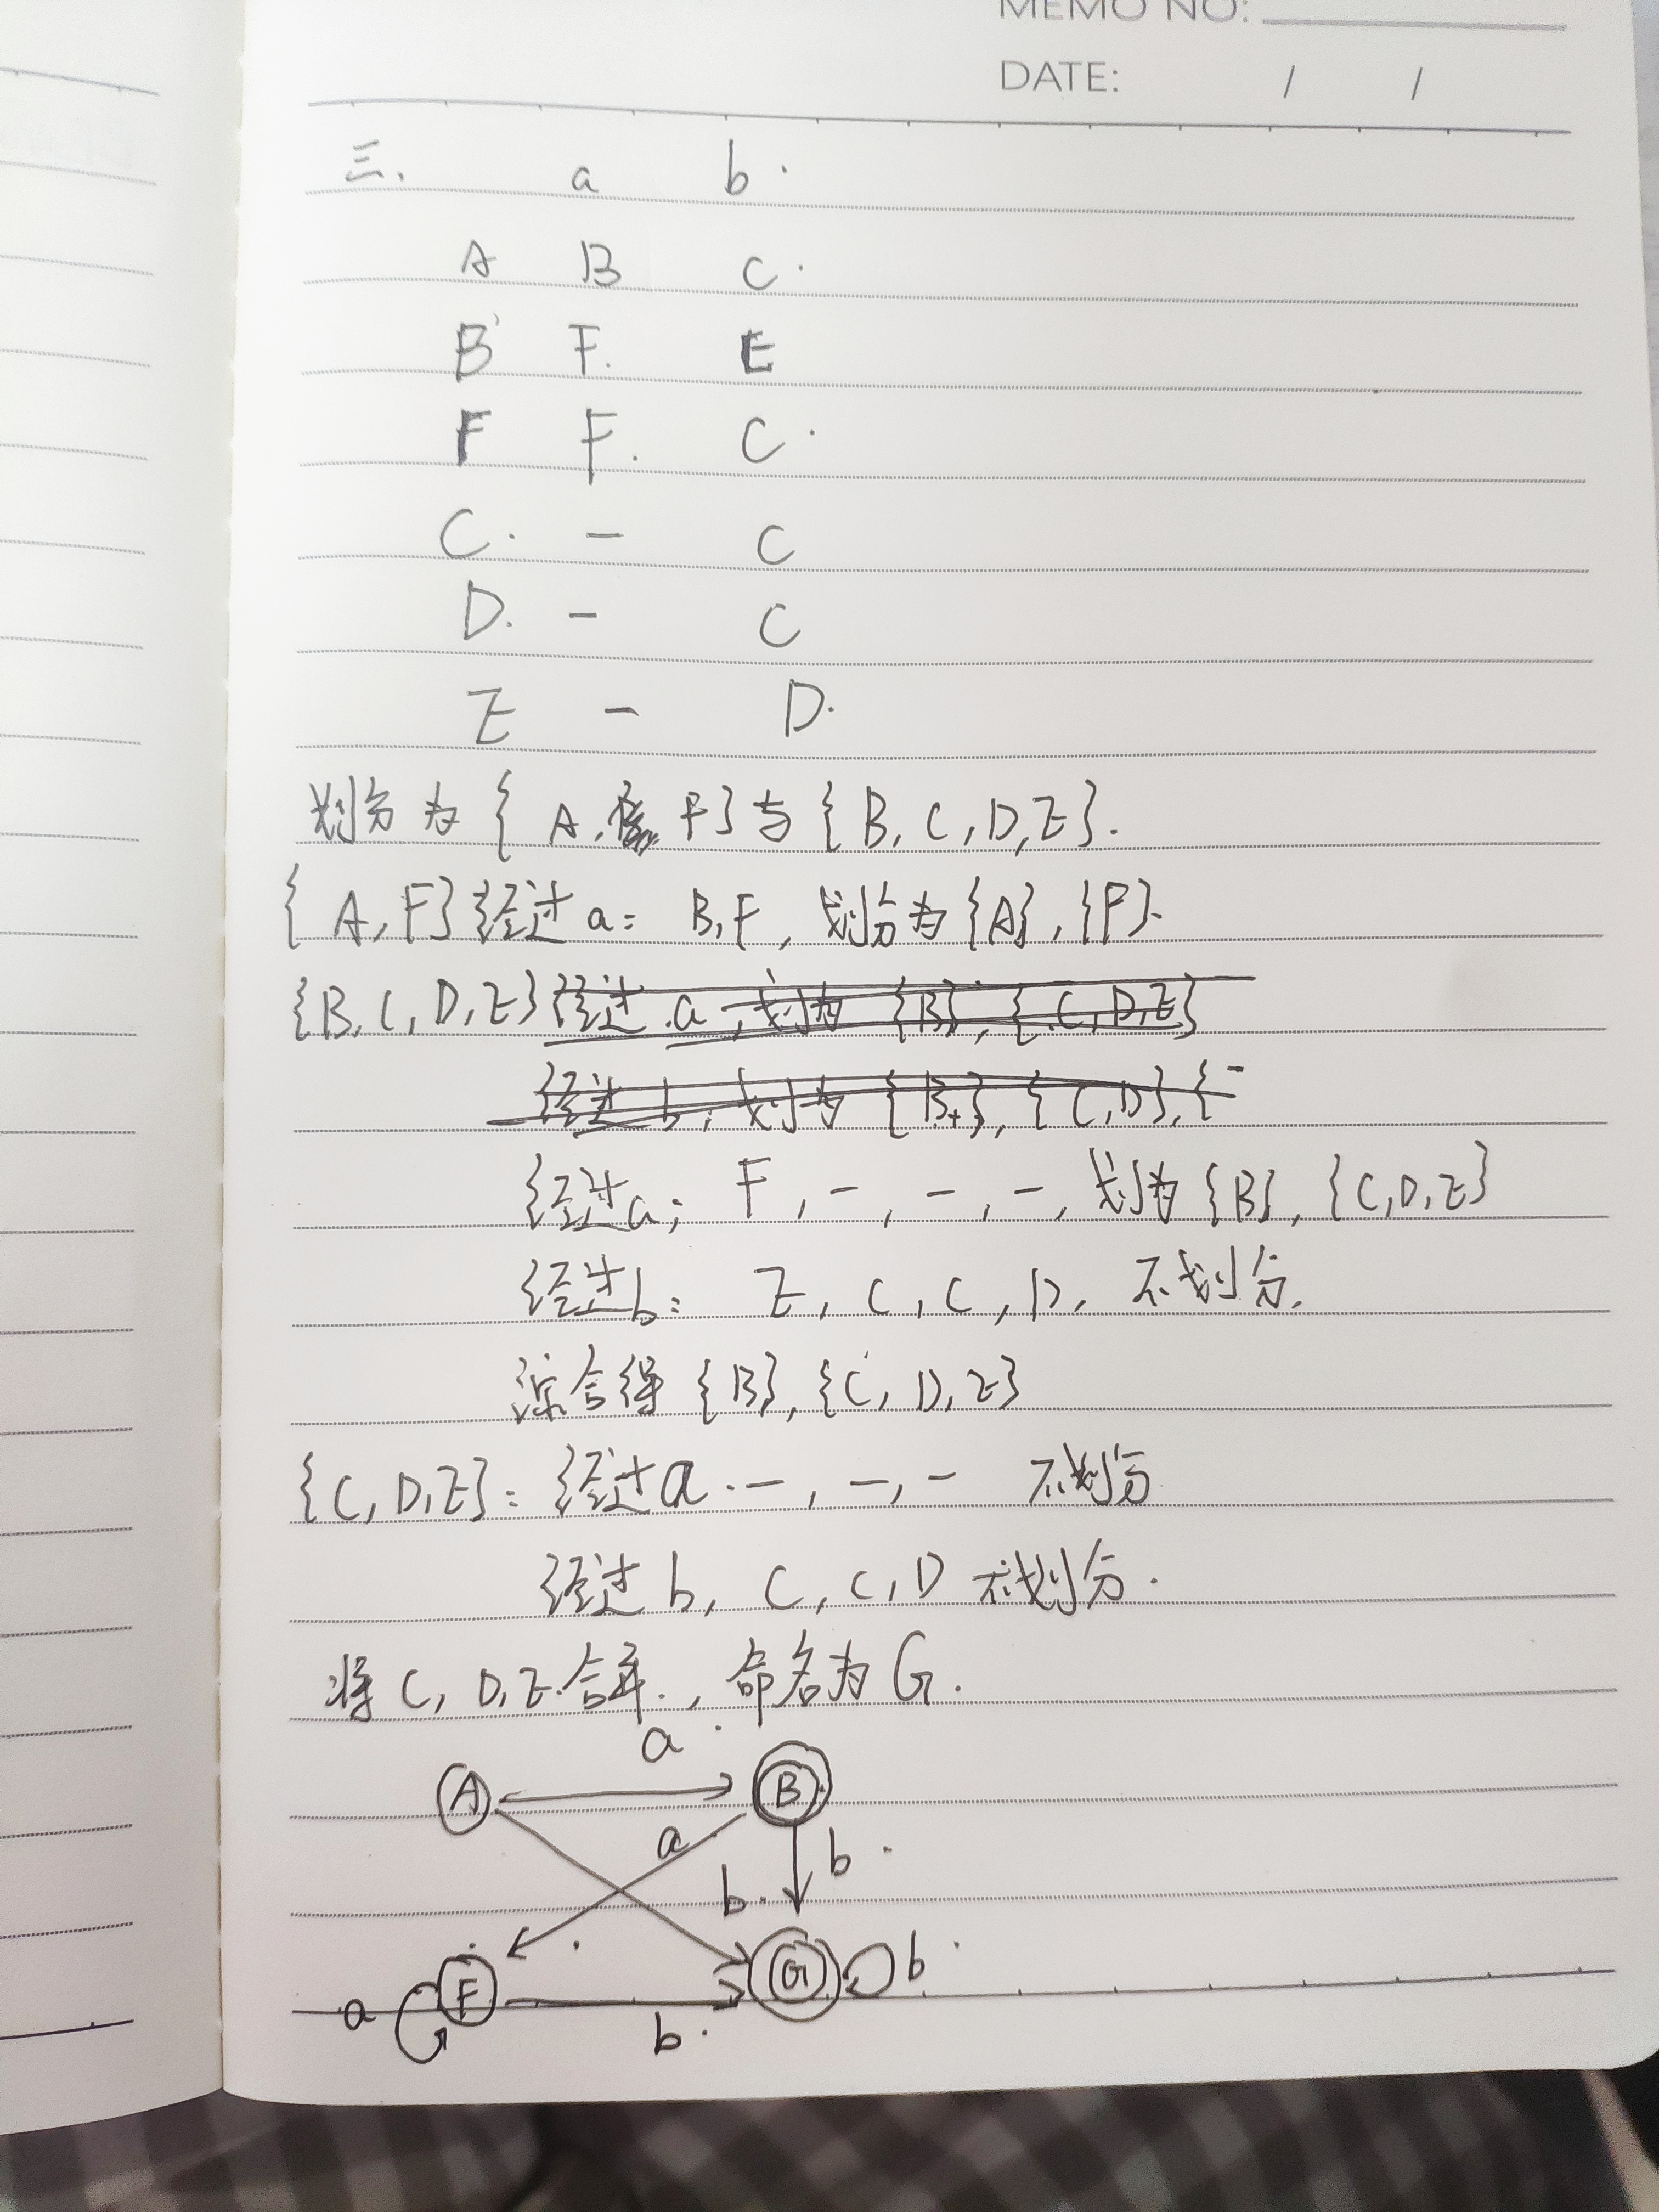 MEMO NO:
DATE: / /
三. a b
A B C
B F E
F F C
C - C
D - C
E - D
划分为{A, F}与{B, C, D, E}.
{A, F}经过a: B, F, 划分为{A}, {F}.
{B, C, D, E} 经过a, 划为{B}, {C, D, E}
经过b, 划为{B}, {C, D}, {
经过a: F, -, -, -, 划为{B}, {C, D, E}
经过b: E, C, C, D, 不划分.
综合得{B}, {C, D, E}
{C, D, E}: 经过a. -, -, - 不划分
经过b, C, C, D 不划分.
将C, D, E合并, 命名为G.
a
A B
a b
b
F G b
a b